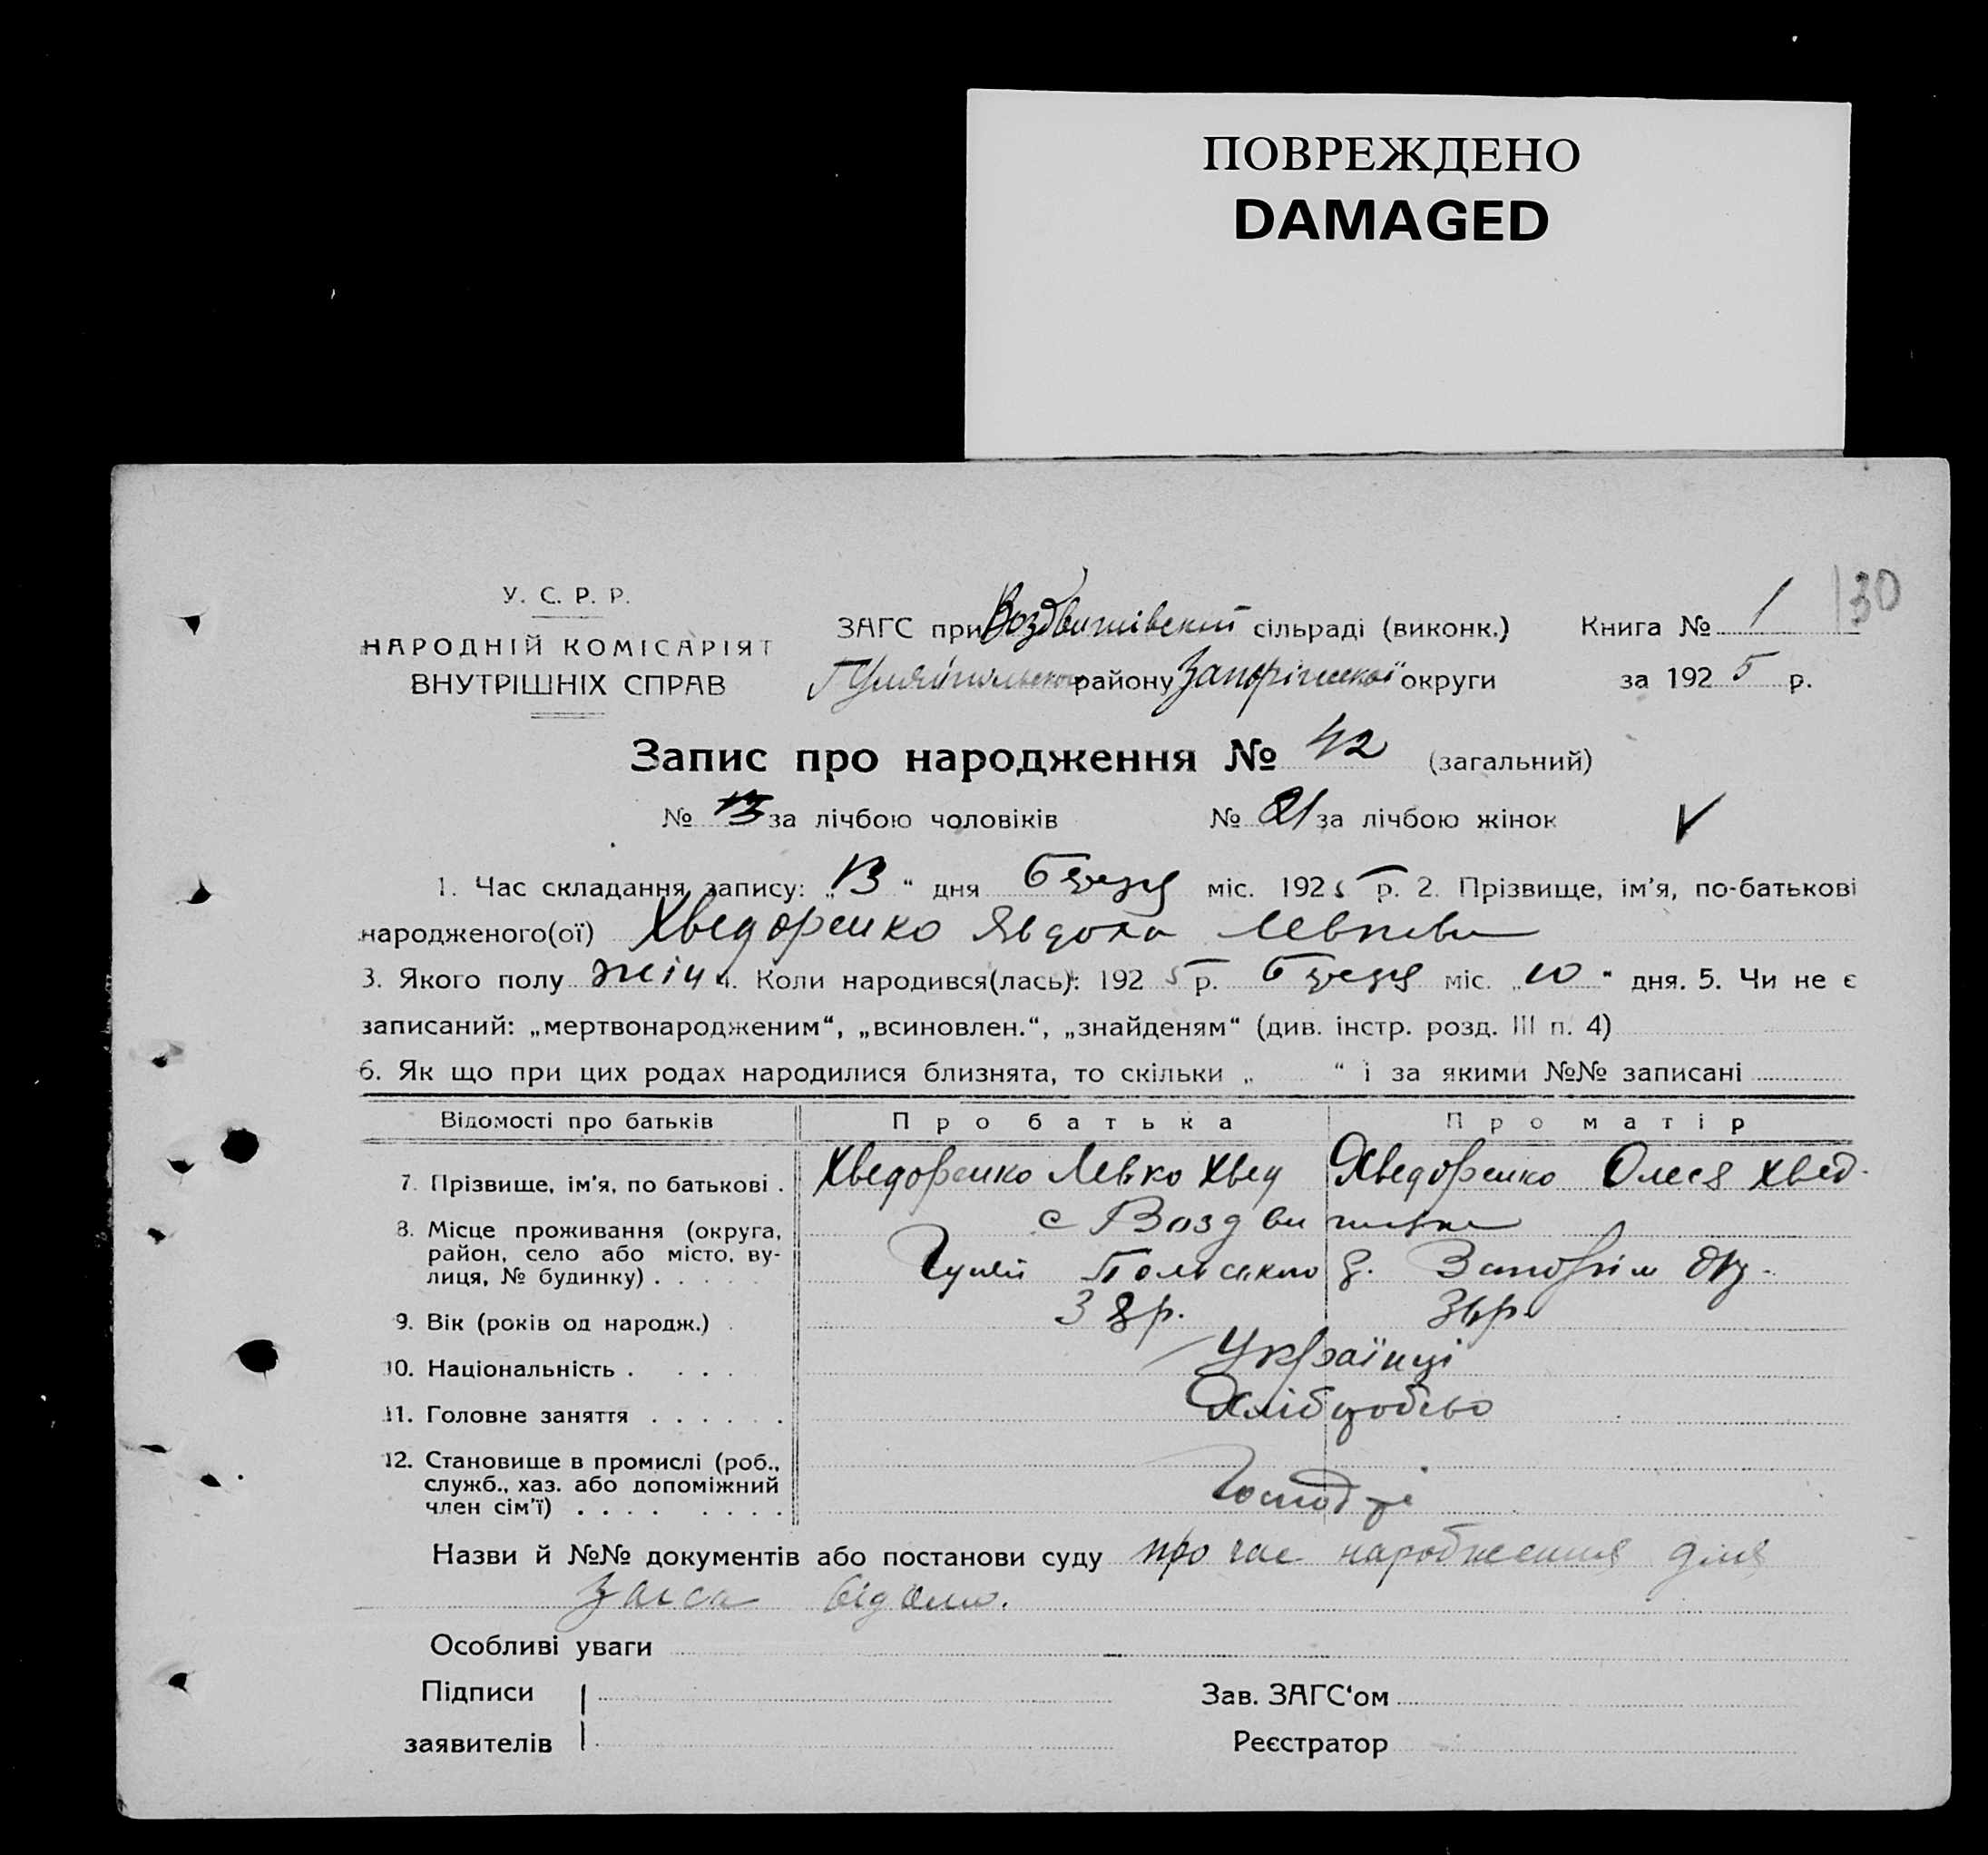 ПОВРЕЖДЕНО
DAMAGED
130
У. С. Р. Р.
НАРОДНІЙ КОМІСАРІЯТ
ВНУТРІШНІХ СПРАВ
ЗАГС при Воздвижівскій сільраді (виконк.)
Книга № 1
Гуляйпільского району Запоріжскої округи
за 1925 р.
Запис про народження № 42 (загальний)
№ 13 за лічбою чоловіків № 21 за лічбою жінок
1. Час складання запису: „13“ дня міс. 1925 р. 2. Прізвище, ім’я, по-батькові
народженого(ої) Хведоренко Явдоха Левкова
3. Якого полу жіч 4. Коли народився(лась): 1925 р. міс. „10“ дня. 5. Чи не є
записаний: „мертвонародженим“, „всиновлен.“, „знайденям“ (див. інстр. розд. III п. 4)
6. Як що при цих родах народилися близнята, то скільки „ “ і за якими №№ записані
Відомості про батьків Про батька Про матір
7. Прізвище, ім’я, по батькові . Хведоренко Левко Хвед Хведоренко Олеся Хвед.
8. Місце проживання (округа, с Воздвижівка
район, село або місто, ву- Гуляй Польского р. Запоріж окр.
лиця, № будинку) . . . . .
9. Вік (років од народж.) . 38р. 36р.
10. Національність . . . . Українці
11. Головне заняття . . . . . . Хліборобство
12. Становище в промислі (роб.,
служб., хаз. або допоміжний
член сім’ї) . . . . . . . .
Назви й №№ документів або постанови суду про час народження для
загса відомо.
Особливі уваги
Підписи Зав. ЗАГС‘ом
заявителів Реєстратор